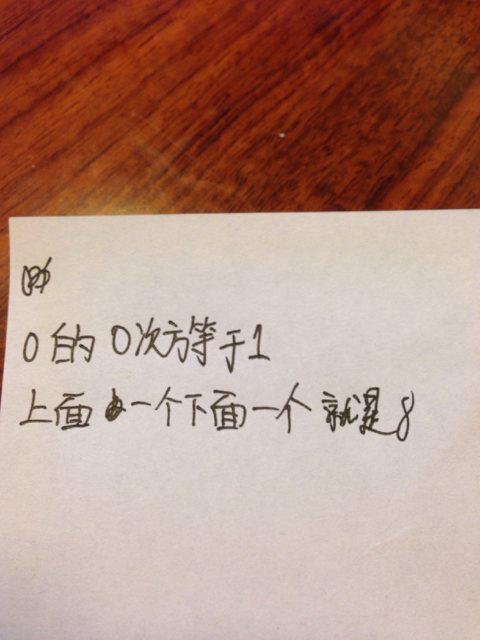 0的0次方等于1
上面一个下面一个就是8